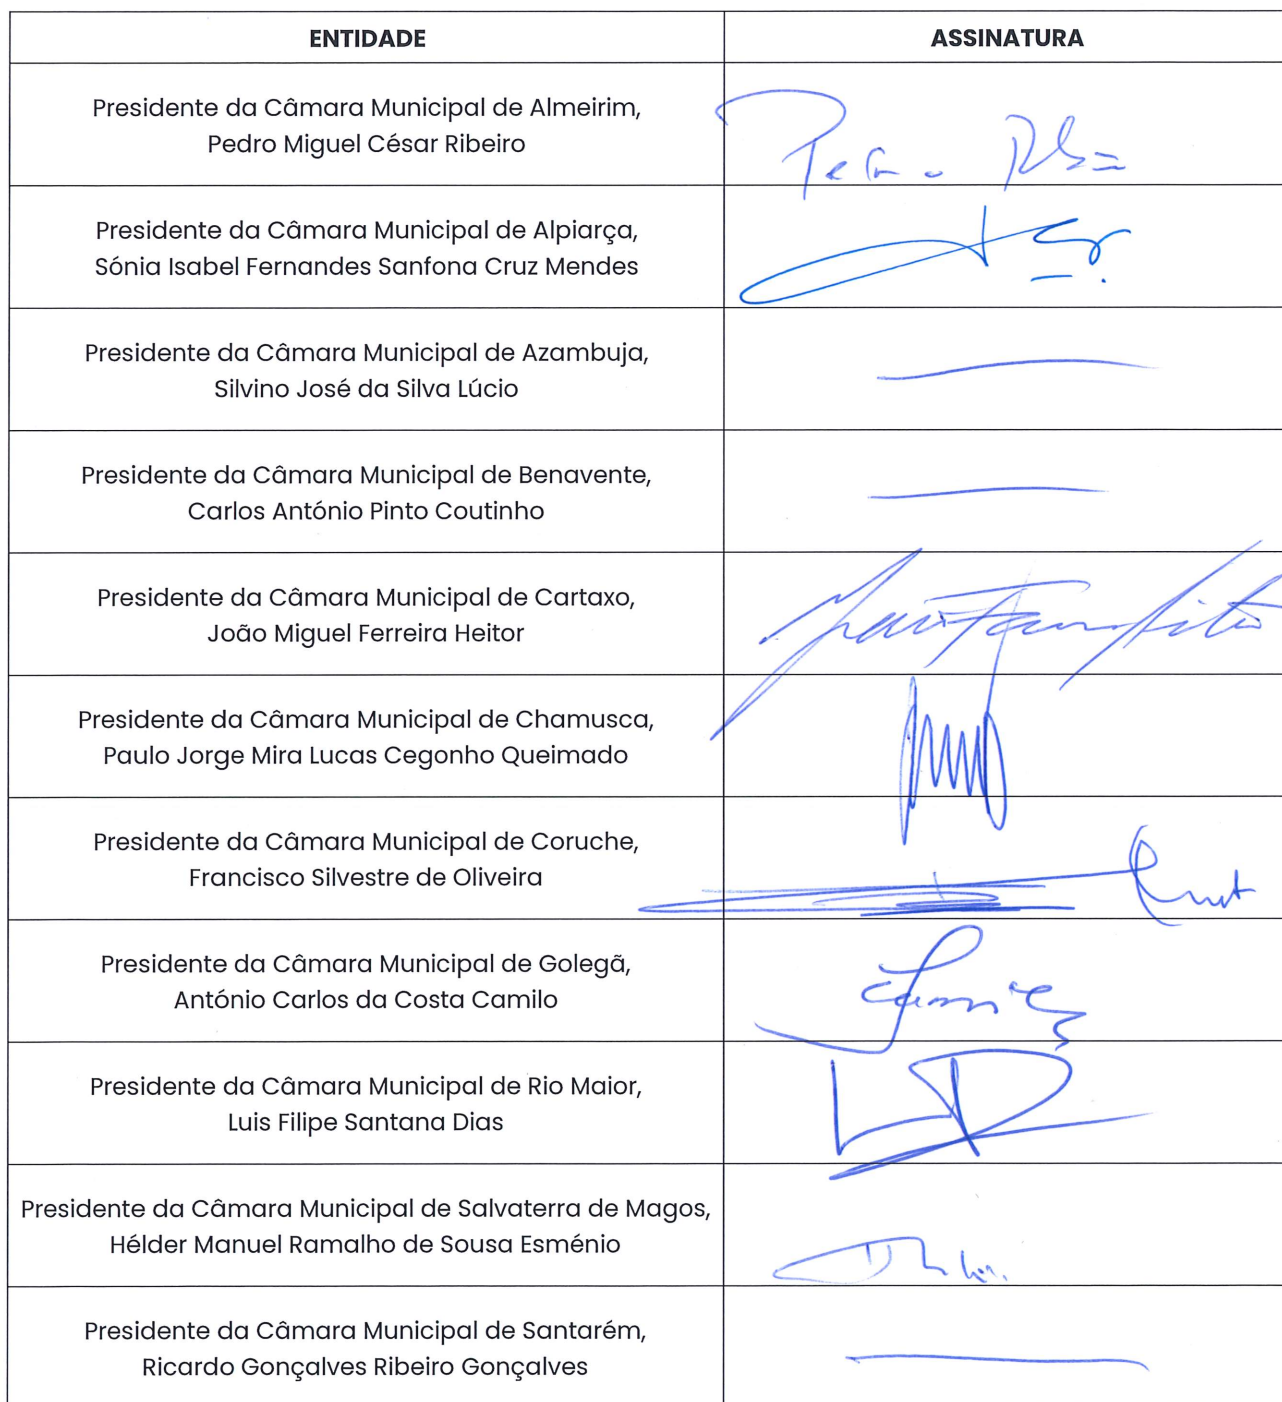 ENTIDADE
ASSINATURA
Presidente da Câmara Municipal de Almeirim,
Pedro Miguel César Ribeiro
Presidente da Câmara Municipal de Alpiarça,
Sónia Isabel Fernandes Sanfona Cruz Mendes
Presidente da Câmara Municipal de Azambuja,
Silvino José da Silva Lúcio
Presidente da Câmara Municipal de Benavente,
Carlos António Pinto Coutinho
Presidente da Câmara Municipal de Cartaxo,
João Miguel Ferreira Heitor
Presidente da Câmara Municipal de Chamusca,
Paulo Jorge Mira Lucas Cegonho Queimado
Presidente da Câmara Municipal de Coruche,
Francisco Silvestre de Oliveira
Presidente da Câmara Municipal de Golegã,
António Carlos da Costa Camilo
Presidente da Câmara Municipal de Rio Maior,
Luis Filipe Santana Dias
Presidente da Câmara Municipal de Salvaterra de Magos,
Hélder Manuel Ramalho de Sousa Esménio
Presidente da Câmara Municipal de Santarém,
Ricardo Gonçalves Ribeiro Gonçalves